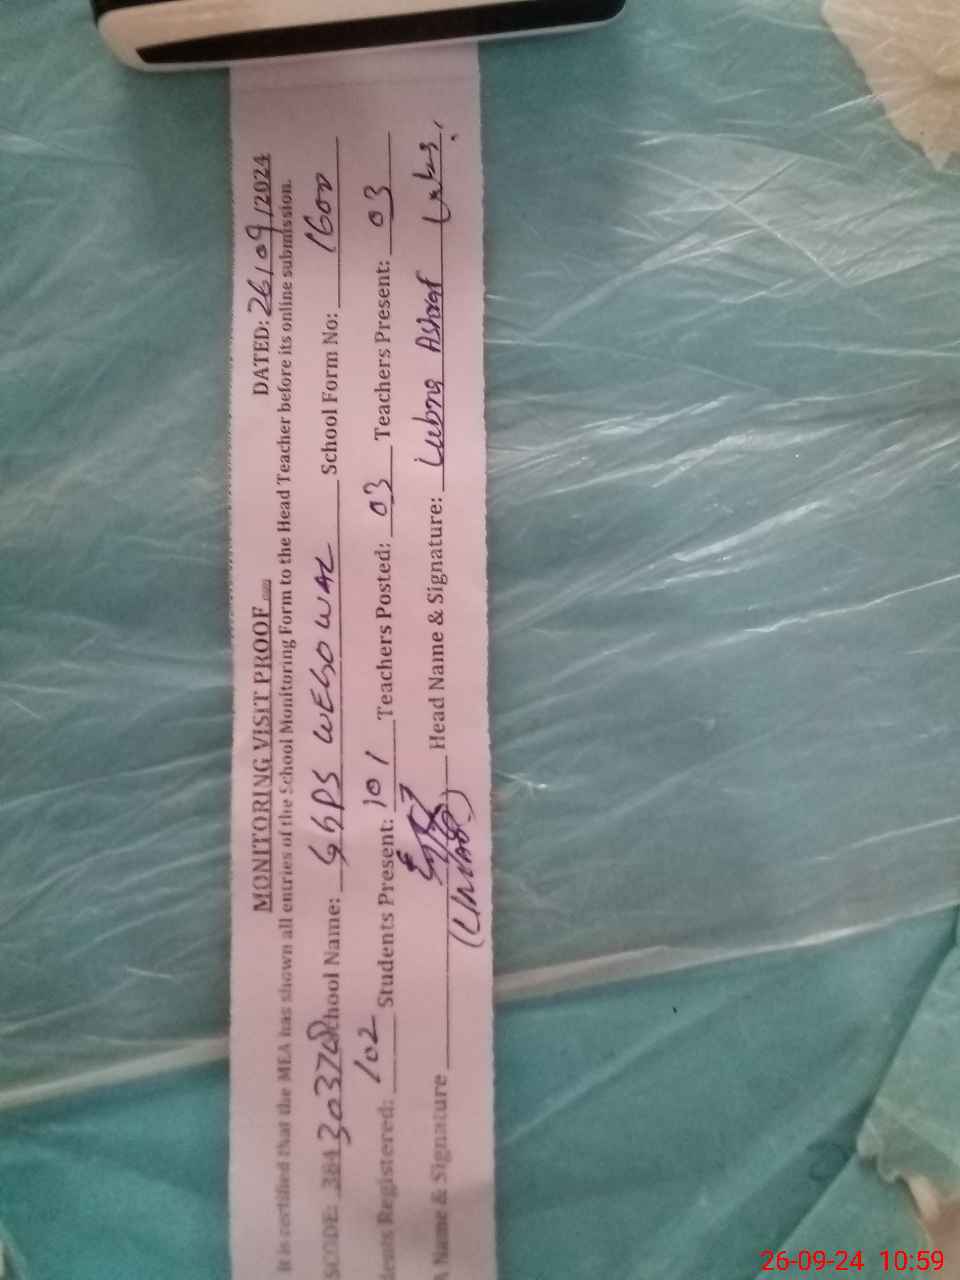 MONITORING VISIT PROOF DATED: 26/09/2024
It is certified that the MEA has shown all entries of the School Monitoring Form to the Head Teacher before its online submission.
SCODE: 38430370 School Name: GGPS WEGOWAL School Form No: 1600
dents Registered: 102 Students Present: 101 Teachers Posted: 03 Teachers Present: 03
A Name & Signature Head Name & Signature: Lubna Ashraf
26-09-24 10:59